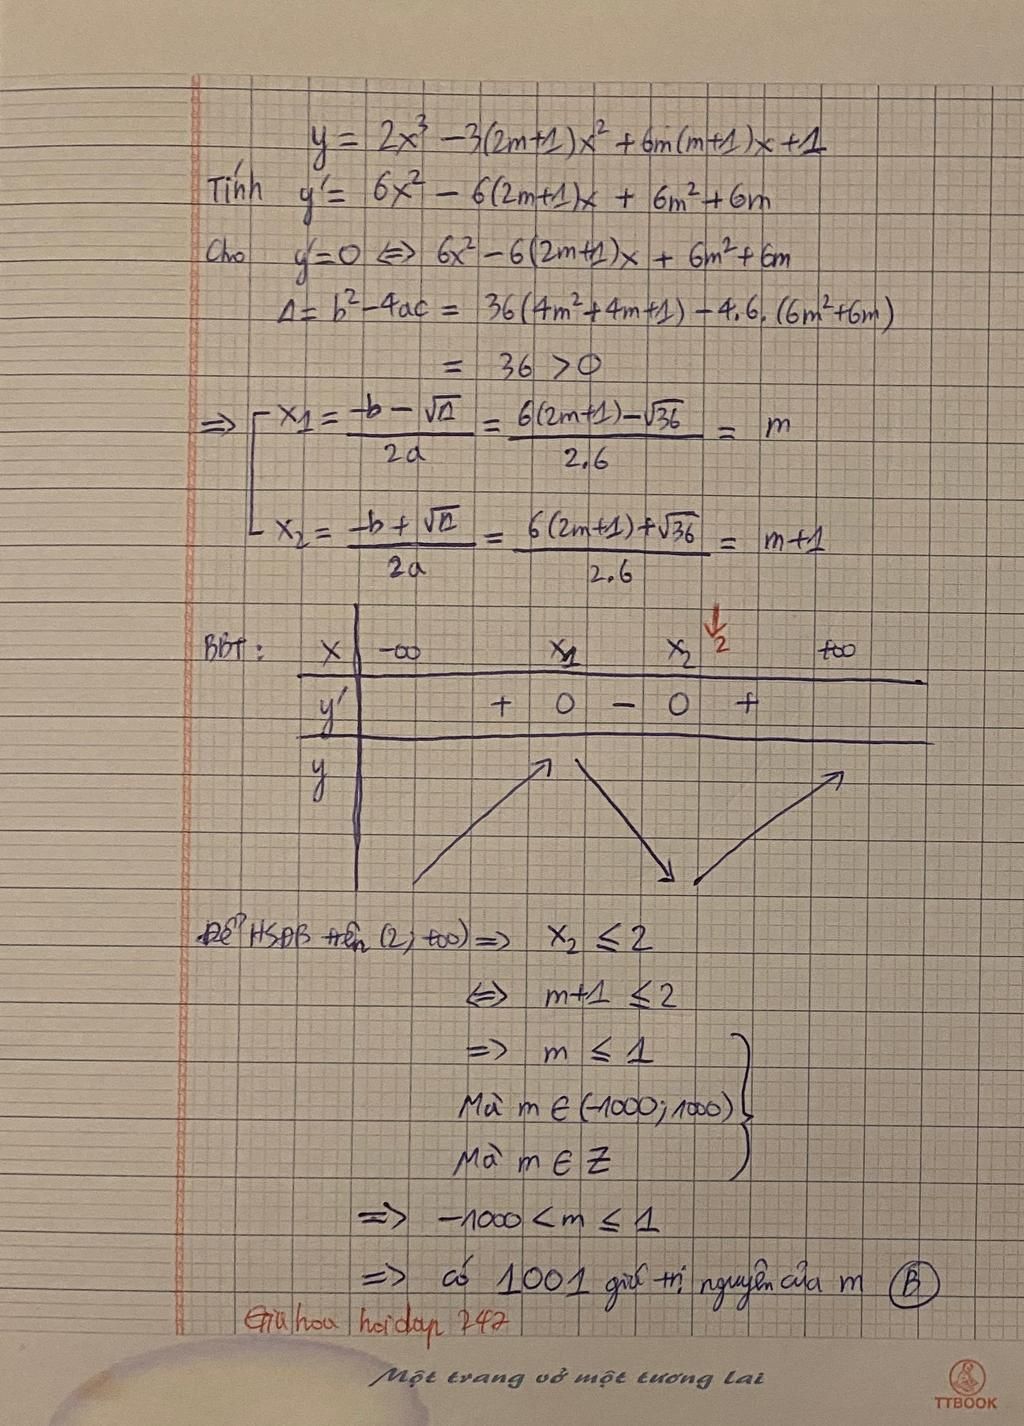 y = 2x³ - 3(2m+1)x² + 6m(m+1)x + 1
Tính y' = 6x² - 6(2m+1)x + 6m² + 6m
Cho y' = 0 ⇔ 6x² - 6(2m+1)x + 6m² + 6m
Δ = b² - 4ac = 36(4m² + 4m + 1) - 4.6.(6m² + 6m)
= 36 > 0
⇒ [ x1 = (-b - √Δ)/2a = (6(2m+1) - √36)/2.6 = m
x2 = (-b + √Δ)/2a = (6(2m+1) + √36)/2.6 = m+1
↓
BBT: x -∞ x1 x2 2 +∞
y' + 0 - 0 +
y
Để HSĐB trên (2; +∞) ⇒ x2 ≤ 2
⇔ m+1 ≤ 2
⇒ m ≤ 1
Mà m ∈ (-1000; 1000)
Mà m ∈ Z
⇒ -1000 < m ≤ 1
⇒ có 1001 giá trị nguyên của m (B)
hoidap 247
Một trang vở một tương lai
TTBOOK